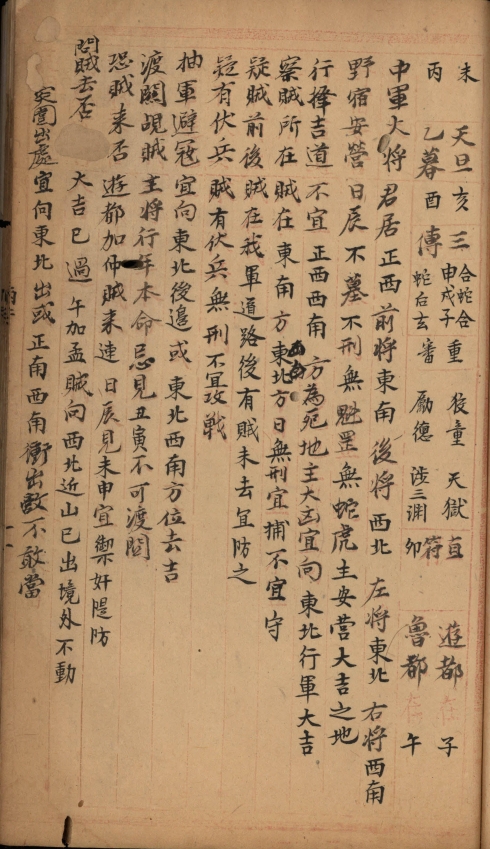 未 天旦亥 三 合蛇合 申戌子 重 後重 天獄 直 遊都在子
丙 乙暮酉 傳 蛇后玄 審 勵德 涉三淵 卯符 魯都在午
中軍大將君居正西前將東南後將西北左將東北右將西南
野宿安營日辰不墓不刑無魁罡無蛇虎主安营大吉之地
行擇吉道不宜正西西南方為死地主大凶宜向東北行軍大吉
察賊所在賊在東南方東北方日無刑宜捕不宜守
疑賊前後賊在我軍道路後有賊未去宜防之
疑有伏兵賊有伏兵無刑不宜攻戰
抽軍避冦宜向東北後邊或東北西南方位去吉
渡關覘賊主將行年本命忌見丑寅不可渡關
恐賊来否遊都加仲賊来連日辰見未申宜禦奸隄防
問賊去否 大吉已過午加孟賊向西北近山已出境外不動
突圍出處宜向東北出或正南西南衝出敵不敢當